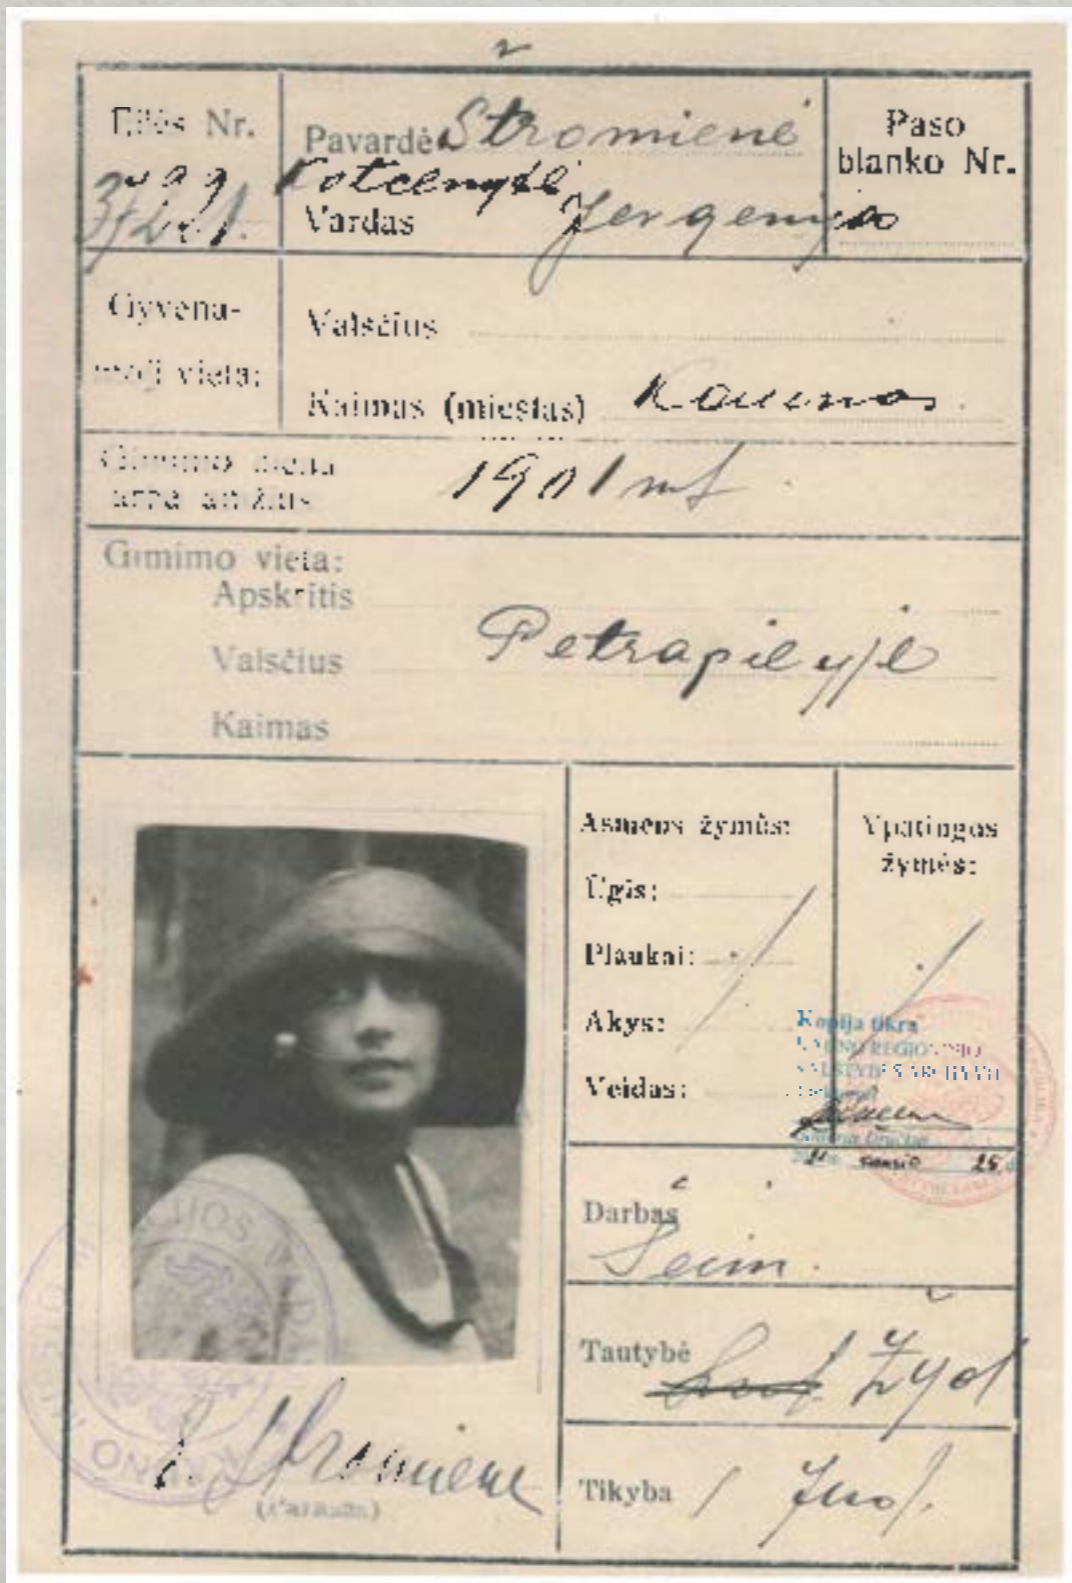 Eilės Nr.
Pavardė Štromienė
Kotcenytė
Vardas Jergenija
Paso
blanko Nr.
Gyvena-
moji vieta:
Valsčius
Kaimas (miestas) Kaunas
Gimimo metai
arba amžius
1901 mt
Gimimo vieta:
Apskritis
Valsčius
Petrapilyje
Kaimas
Asmens žymūs:
Ūgis:
Plaukai:
Akys:
Veidas:
Ypatingos
žymės:
Kopija tikra
KAUNO REGIONINIO
VALSTYBĖS ARCHYVO
sausio 25
Darbas
Šeim.
Tautybė
Žyd
Tikyba
KAUNO
Štromienė
(Parašas)